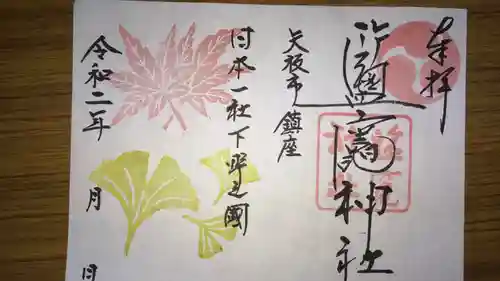 奉拝
鹽竈神社
矢板市鎮座
日本一社下野之國
令和二年 月 日